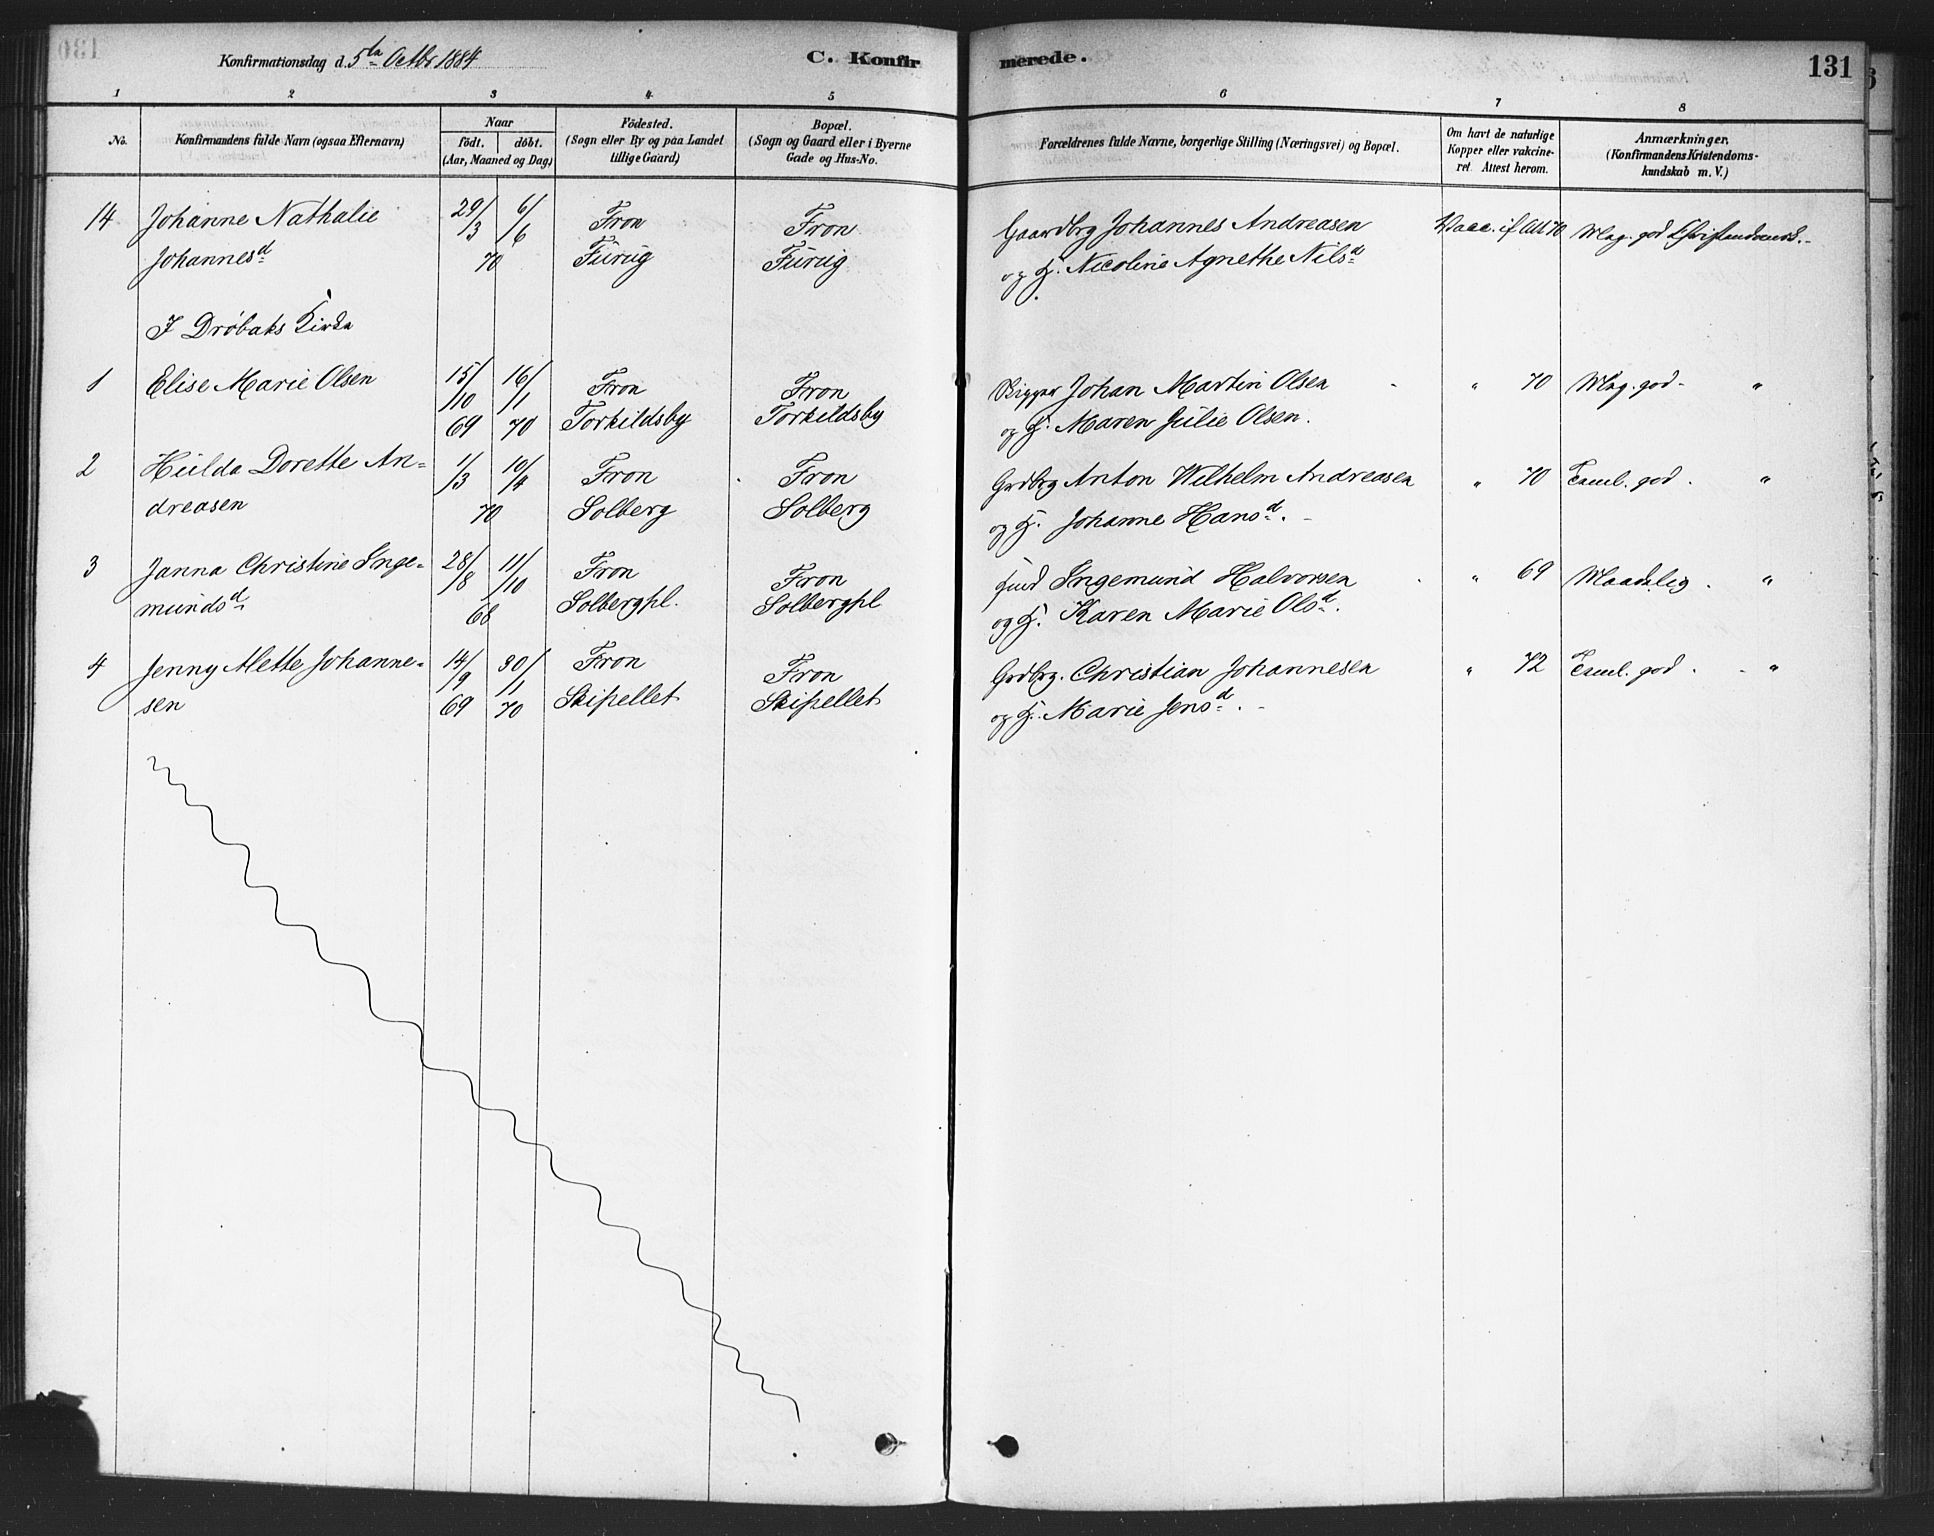 Konfirmationsdag d. 5te Octbr 1884
C. Konfirmerede.
131
1 2 3 4 5 6 7 8
No.
Konfirmandens fulde Navn (ogsaa Efternavn)
Naar
födt. döbt.
(Aar, Maaned og Dag)
Födested.
(Sogn eller By og paa Landet
tillige Gaard)
Bopæl.
(Sogn og Gaard eller i Byerne
Gade og Hus-No.
Forældrenes fulde Navne, borgerlige Stilling (Næringsvei) og Bopæl.
Om havt de naturlige
Kopper eller vakcine-
ret. Attest herom.
Anmærkninger.
(Konfirmandens Kristendoms-
kundskab m. V.)
14 Johanne Nathalie 29/3 6/6 Fron Fron Gaardbrg Johannes Andreasen Vacc. if Att 70 Mag. god Christendomsk.
Johannesd 70 Furug Furug og H. Nicoline Agnethe Nilsd
I Drøbaks Kirke
1 Elise Marie Olsen 15/10 16/1 Fron Fron Johan Martin Olsen " 70 Mag. god "
69 70 Torkildsby Torkildsby og H. Maren Julie Olsen.
2 Hulda Dorette An= 1/3 10/4 Fron Fron Grdbrg Anton Wilhelm Andreasen " 70 Taml. god "
dreasen 70 Solberg Solberg og H. Johanne Hansd.
3 Janna Christine Inge= 28/8 11/10 Fron Fron Ingemund Halvorsen " 69 Maadelig "
mundsd 68 Solbergpl. Solbergpl og H. Karen Marie Olsd.
4 Jenny Mette Johanne= 14/9 30/1 Fron Fron Grdbrg. Christian Johannesen " 72 Taml. god "
sen 69 70 Skipellet Skipellet og H. Marie Jensd.